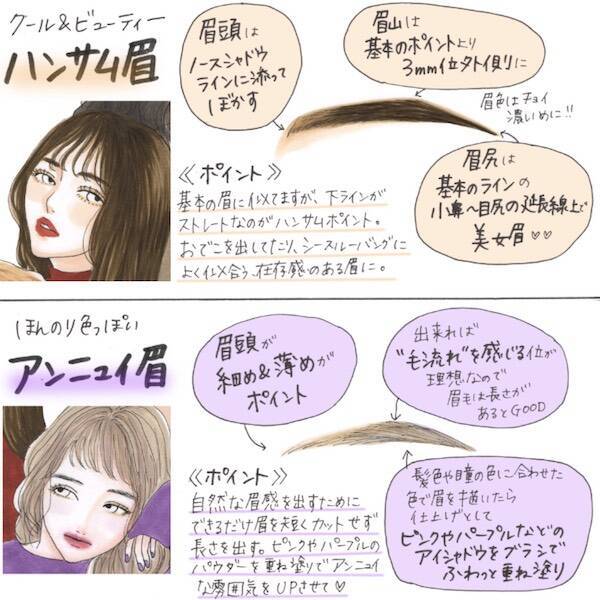 クール&ビューティー
ハンサム眉
眉頭は
ノースシャドウ
ラインに添って
ぼかす
眉山は
基本のポイントより
3mm位外側に
眉色はチョイ
濃いめに!!
眉尻は
基本のラインの
小鼻〜目尻の延長線上で
美女眉♡♡
《ポイント》
基本の眉に似てますが、下ラインが
ストレートなのがハンサムポイント。
おでこを出してたり、シースルーバングに
よく似合う、存在感のある眉に。
ほんのり色っぽい
アンニュイ眉
眉頭が
細め&薄めが
ポイント
出来れば
"毛流れ"を感じる位が
理想なので
眉毛は長さが
あるとGOOD
《ポイント》
自然な眉感を出すために
できるだけ眉を短くカットせず
長さを出す。ピンクやパープルの
パウダーを重ね塗りでアンニュイ
な雰囲気をUPさせて♡
髪色や瞳の色に合わせた
色で眉を描いたら
仕上げとして
ピンクやパープルなどの
アイシャドウをブラシで
ふわっと重ね塗り